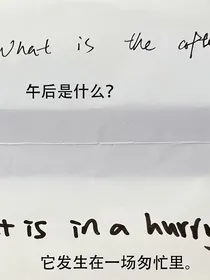 What is the
午后是什么?
t is in a hurry
它发生在一场匆忙里。